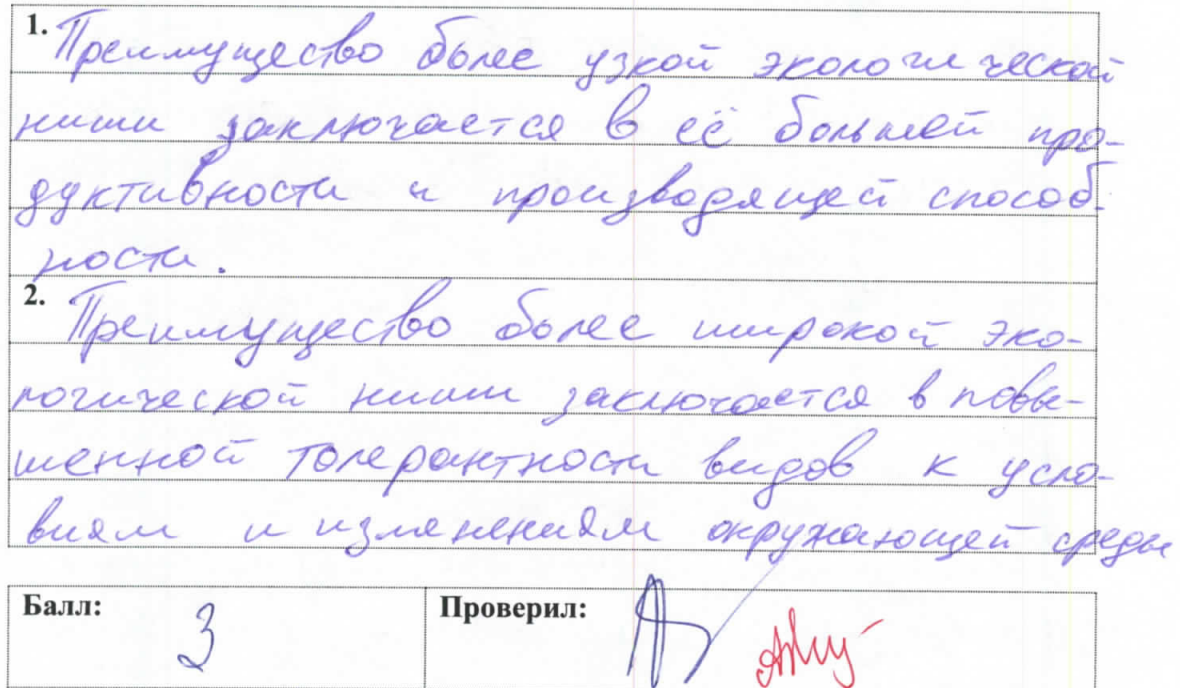 1. Преимущество более узкой экологической
ниши заключается в её большей про-
дуктивности и производящей способ-
ности.
2. Преимущество более широкой эко-
логической ниши заключается в повы-
шенной толерантности видов к усло-
виям и изменениям окружающей среды
Балл: 3 Проверил: